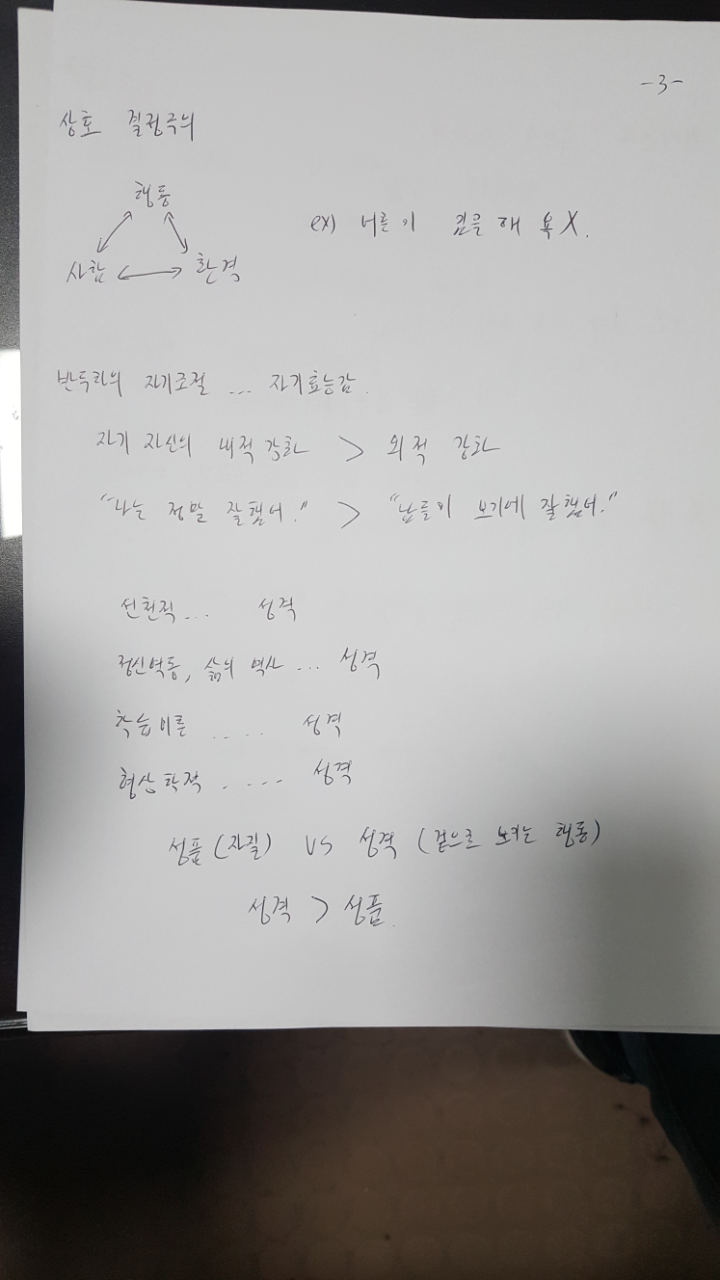 -3-
상호 결정주의
행동
사람 환경
ex) 어른이 해 욕X.
반두라의 자기조절 ... 자기효능감.
자기 자신의 내적 강화 > 외적 강화
"나는 정말 잘했어." > "남들이 보기에 잘했어."
선천적... 성격
정신역동, 삶의 역사 ... 성격
학습이론 ..... 성격
현상학적 ..... 성격
성품(자질) VS 성격 (겉으로 보이는 행동)
성격 > 성품.